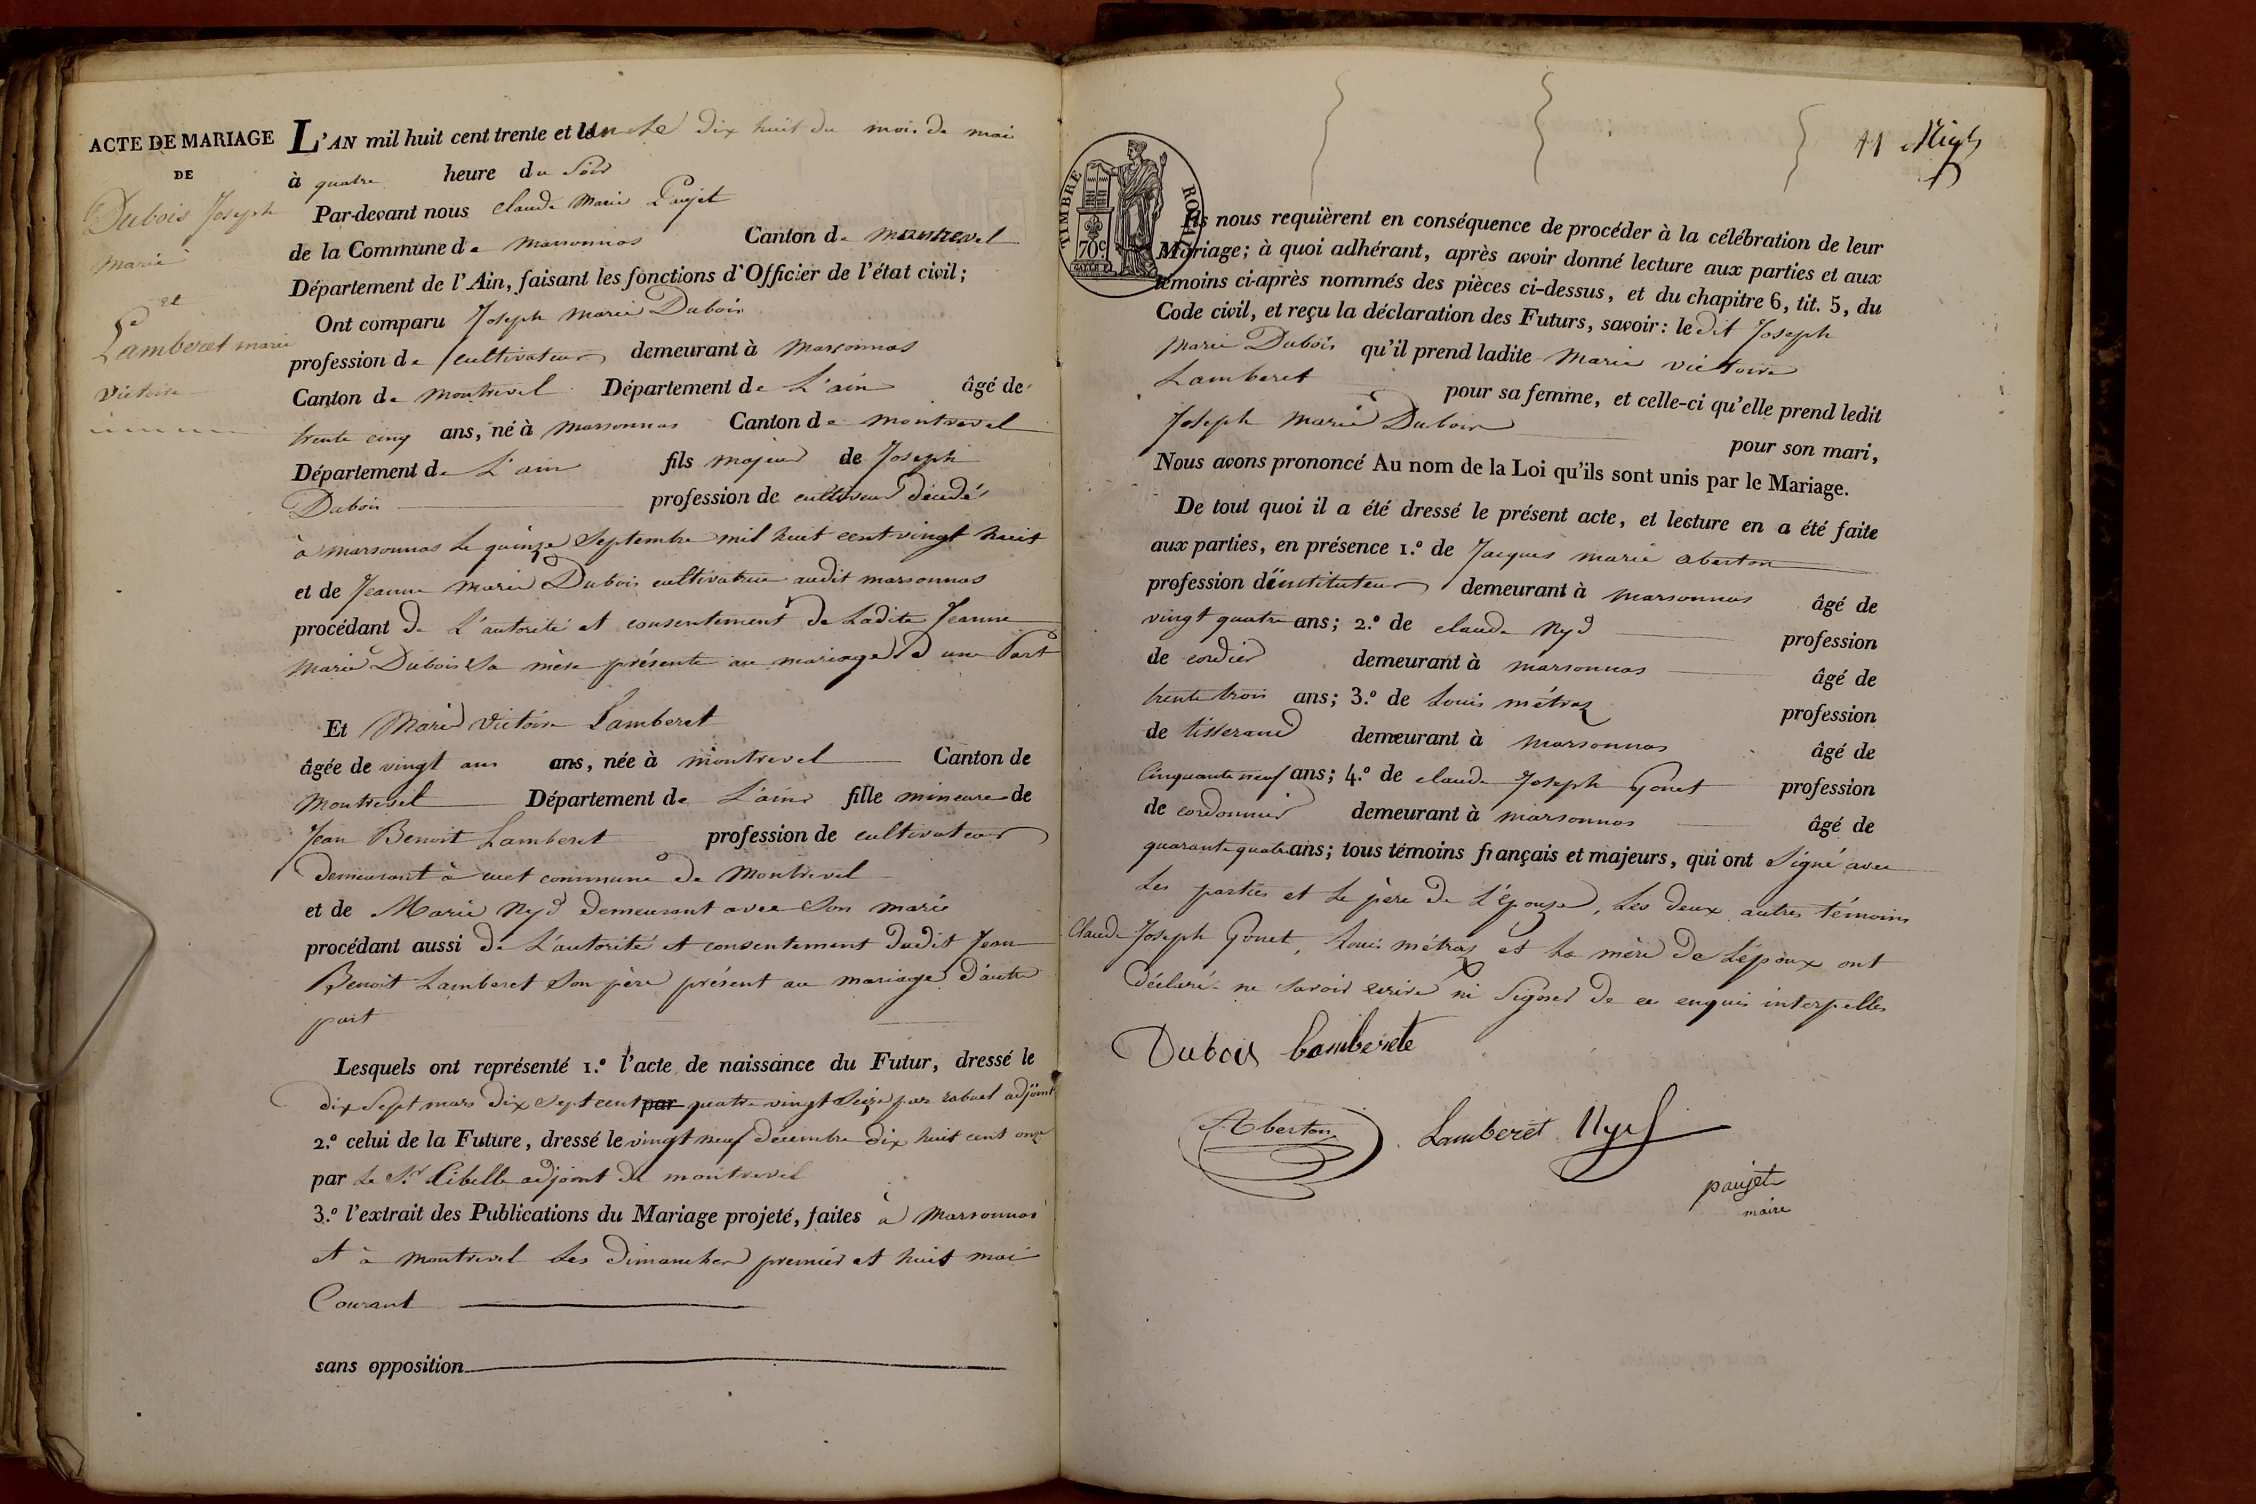 ACTE DE MARIAGE
DE
Dubois Joseph
marie
et
Lamberet marie
victoire
L'AN mil huit cent trente et un le dix huit du mois de mai
à quatre heure du soir
Par-devant nous claude Marie Paujet
de la Commune de marsonnas Canton de montrevel
Département de l'Ain, faisant les fonctions d'Officier de l'état civil;
Ont comparu Joseph marie Dubois
profession de cultivateur demeurant à marsonnas
Canton de montrevel Département de L'ain âgé de
trente cinq ans, né à marsonnas Canton de montrevel
Département de L'ain fils majeur de Joseph
Dubois profession de cultivateur décédé
à marsonnas le quinze Septembre mil huit cent vingt huit
et de Jeanne marie Dubois cultivatrice audit marsonnas
procédant de L'autorité et consentement de Ladite Jeanne
marie Dubois Sa mère présente au mariage d'une Part
Et Marie victoire Lamberet
âgée de vingt ans ans, née à montrevel Canton de
montrevel Département de L'ain fille mineure de
Jean Benoit Lamberet profession de cultivateur
demeurant à cuet commune de Montrevel
et de Marie Nyd demeurant avec Son marie
procédant aussi de L'autorité et consentement dudit Jean
Benoit Lamberet Son père présent au mariage d'autre
part
Lesquels ont représenté 1.° l'acte de naissance du Futur, dressé le
dix Sept mars dix Sept cent par quatre vingt Seize par rabuel adjoint
2.° celui de la Future, dressé le vingt neuf décembre dix huit cent onze
par Le Sr. Libelle adjoint de montrevel
3.° l'extrait des Publications du Mariage projeté, faites à Marsonnas
et à montrevel Les dimanches premier et huit mai
Courant
sans opposition
41
TIMBRE ROYAL
70c
Ils nous requièrent en conséquence de procéder à la célébration de leur
Mariage; à quoi adhérant, après avoir donné lecture aux parties et aux
témoins ci-après nommés des pièces ci-dessus, et du chapitre 6, tit. 5, du
Code civil, et reçu la déclaration des Futurs, savoir: ledit Joseph
marie Dubois qu'il prend ladite marie victoire
Lamberet pour sa femme, et celle-ci qu'elle prend ledit
Joseph marie Dubois pour son mari,
Nous avons prononcé Au nom de la Loi qu'ils sont unis par le Mariage.
De tout quoi il a été dressé le présent acte, et lecture en a été faite
aux parties, en présence 1.° de Jacques marie aberton
profession d'instituteur demeurant à marsonnas âgé de
vingt quatre ans; 2.° de claude Nyd profession
de cordier demeurant à marsonnas âgé de
trente trois ans; 3.° de Louis métraz profession
de tisserand demeurant à marsonnas âgé de
Cinquante neuf ans; 4.° de claude Joseph Gonet profession
de cordonnier demeurant à marsonnas âgé de
quarante quatre ans; tous témoins français et majeurs, qui ont Signé avec
Les parties et Le père de L'épouse, Les deux autres témoins
Claude Joseph Gonet, Louis métraz et La mère de L'époux ont
déclaré ne savoir écrire ni Signer de ce enquis interpellés
Dubois Lamberete
Aberton Lamberet Nyd
paujet
maire